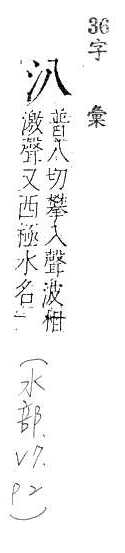 36
字彙
汃
普八切攀入聲波相
激聲又西極水名」
(水部.
V7.
P2)